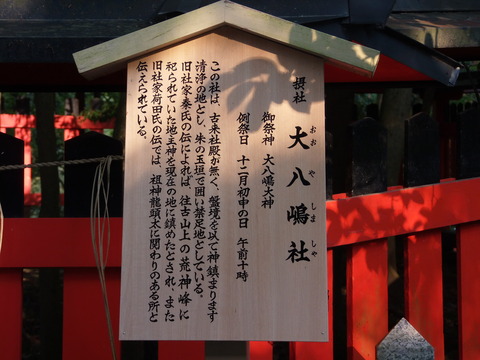 摂社
大八嶋社
おおやしましゃ
御祭神 大八嶋大神
例祭日 十二月初申の日 午前十時
この社は、古来社殿が無く、磐境を以て神鎮まります
清浄の地とし、朱の玉垣で囲い禁足地としている。
旧社家秦氏の伝によれば、往古山上の荒神峰に
祀られていた地主神を現在の地に鎮めたとされ、また
旧社家荷田氏の伝では、祖神龍頭太に関わりのある所と
伝えられている。